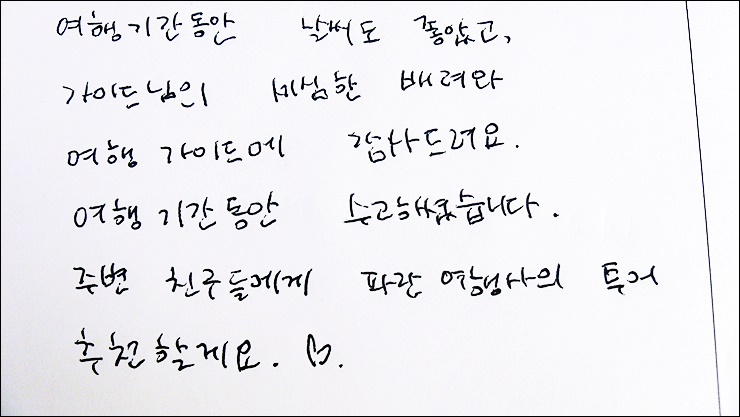 여행기간동안 날씨도 좋았고,
가이드님의 세심한 배려와
여행 가이드에 감사드려요.
여행기간동안 수고하셨습니다.
주변 친구들에게 파란여행사의 투어
추천할게요.